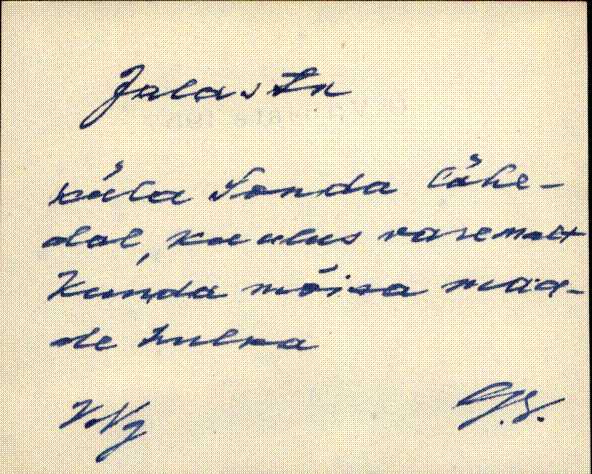 Jalastu
küla Sonda lähe-
dal, kuulus varemalt
Kunda mõisa maa-
de hulka
VNg